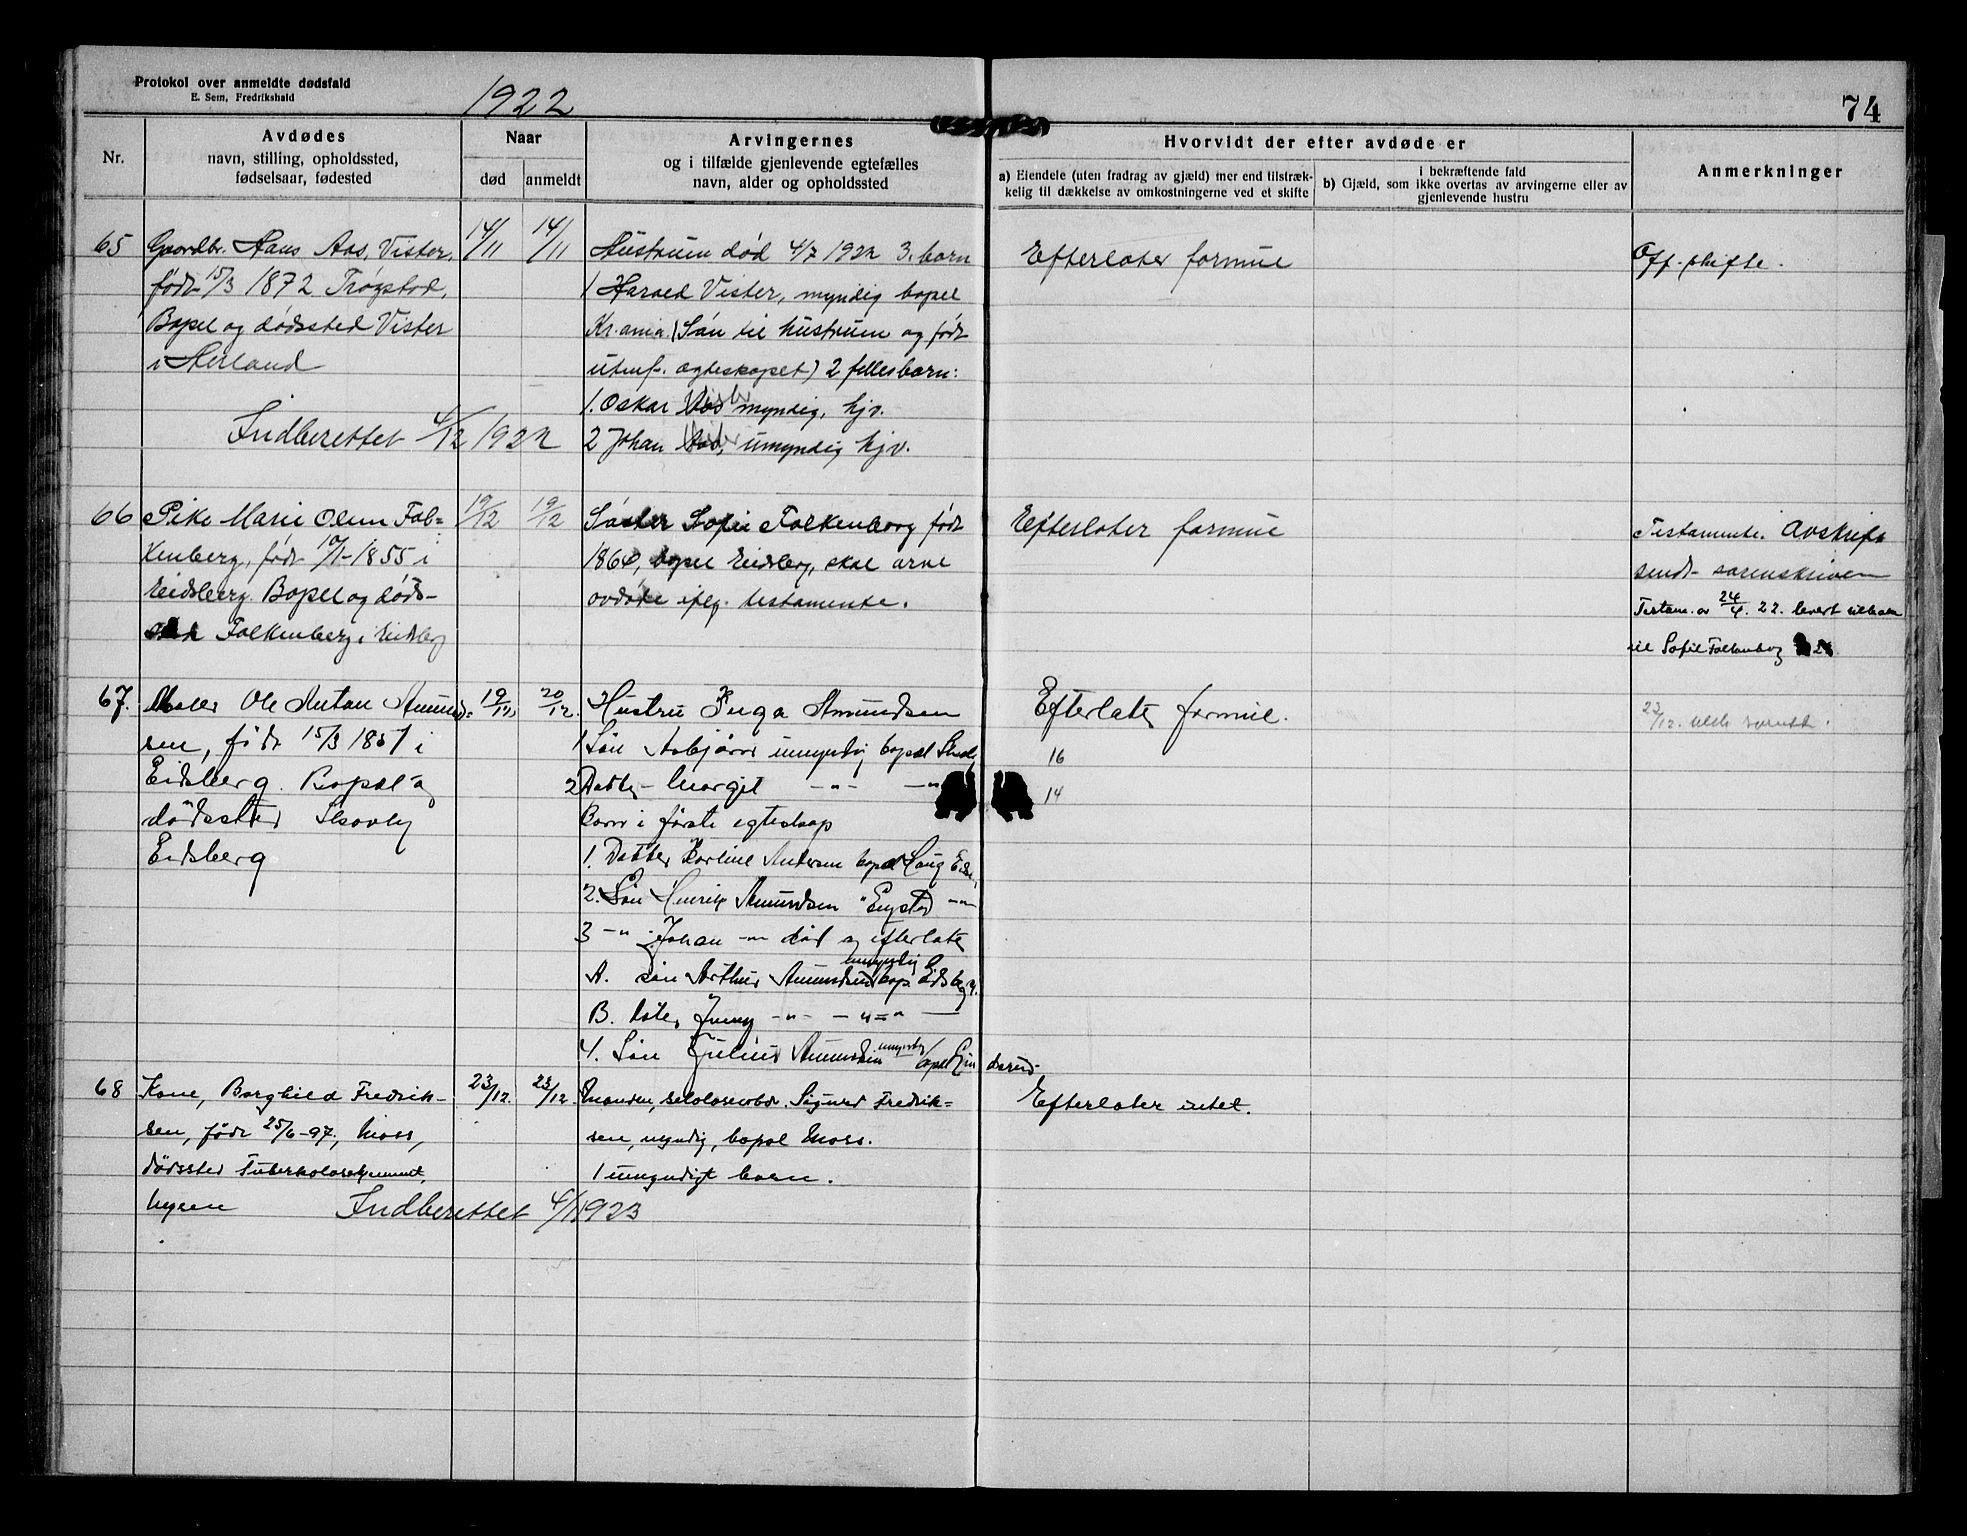 Protokol over anmeldte dødsfald
E. Sem, Fredrikshald
1922
74
Nr.
Avdødes
navn, stilling, opholdssted,
fødselsaar, fødested
Naar
død
anmeldt
Arvingernes
og i tilfælde gjenlevende egtefælles
navn, alder og opholdssted
Hvorvidt der efter avdøde er
a) Eiendele (uten fradrag av gjæld) mer end tilstræk-
kelig til dækkelse av omkostningerne ved et skifte
i bekræftende fald
b) Gjæld, som ikke overtas av arvingerne eller av
gjenlevende hustru
Anmerkninger
65
Gaardbr. Hans Aas, Vister,
født 15/3 1872 Trøgstad,
Bopel og dødssted Vister
i Herland
14/11
14/11
Hustruen død 4/7 1922 3. barn
1 Harald Vister, myndig bopel
Kr.ania (Søn til hustruen og født
utenf. egteskapet) 2 fellesbarn:
1. Oskar Vister myndig, hjv.
2 Johan umyndig hjv.
Efterlater formue
Off. skifte.
Indberettet 4/12 1922
66
Pike Marie Olava Fal=
kenberg, født 10/1-1855 i
Eidsberg. Bopel og døds-
sted Falkenberg i Eidsberg
19/12
19/12
Søster Sofie Falkenborg født
1860, bopel Eidsberg, skal arve
avdøde iflg. testamente.
Efterlater formue
Testamente. Avskrift
sendt sorenskriveren
Testam. av 24/4. 22. levert tilbake
til Sofie Falkenborg
67.
Ole Anton Amund=
sen, født 15/3 1851 i
Eidsberg. Bopæl og
dødssted Skovly
Eidsberg
19/11
20/12.
Hustru Inga Amundsen
1 Søn Asbjørn umyndig bopæl Skovly
2 Datter Margit -"- -"-
Barn i første egteskap
1. Datter Karline Andersen bopæl Haug Eidsb.
2. Søn Henrik Amundsen " Engstad -"-
3 -"- Johan -"- død og efterlater
A. søn Arthur Amundsen umyndig bop Eidsberg.
B. Dater Jenny -"- -"-
4. Søn Julius Amundsen umyndig bopæl
Efterlater formue.
16
14
23/12. medd. sorenskr.
68
Kone, Borghild Fredrik-
sen, født 25/6-97, Moss,
dødssted Tuberkolosehjemmet,
Mysen
23/12.
23/12.
Manden, celolosearbdr. Sigurd Fredrik=
sen, myndig, bopæl Moss.
1 umyndigt barn.
Efterlater intet.
Indberettet 4/1 1923